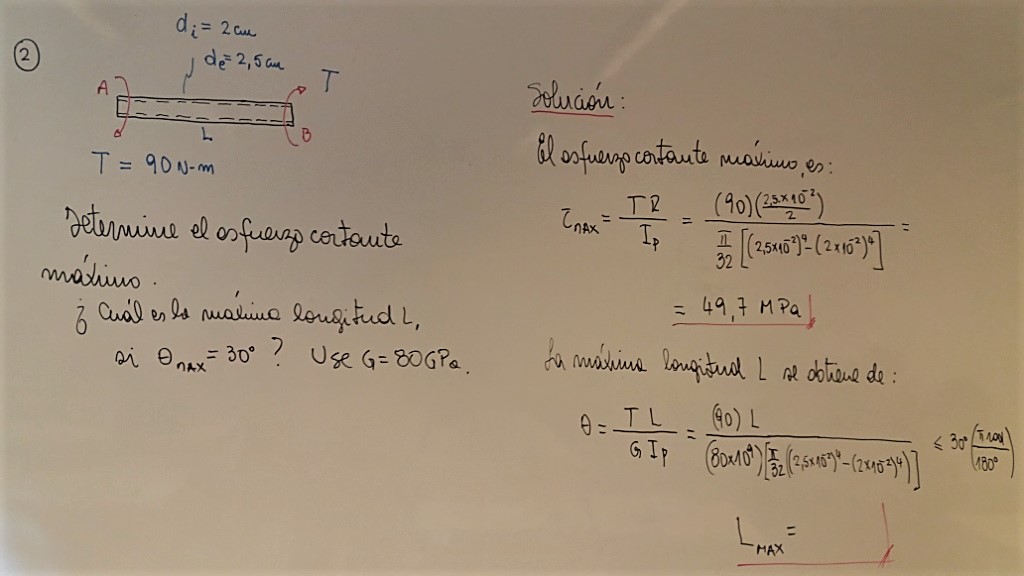 ②
di = 2cm
de = 2,5cm
A
T
L
B
T = 90 N-m
Determine el esfuerzo cortante
máximo.
¿ Cuál es la máxima longitud L,
si θMAX = 30° ? Use G = 80GPa.
Solución:
El esfuerzo cortante máximo, es:
τMAX = T R / Ip = (90)(2,5x10⁻²/2) / π/32 [(2,5x10⁻²)⁴ - (2x10⁻²)⁴] =
= 49,7 MPa
La máxima longitud L se obtiene de:
θ = T L / G Ip = (90) L / (80x10⁹)[π/32((2,5x10⁻²)⁴ - (2x10⁻²)⁴)] ≤ 30° (π rad/180°)
LMAX =